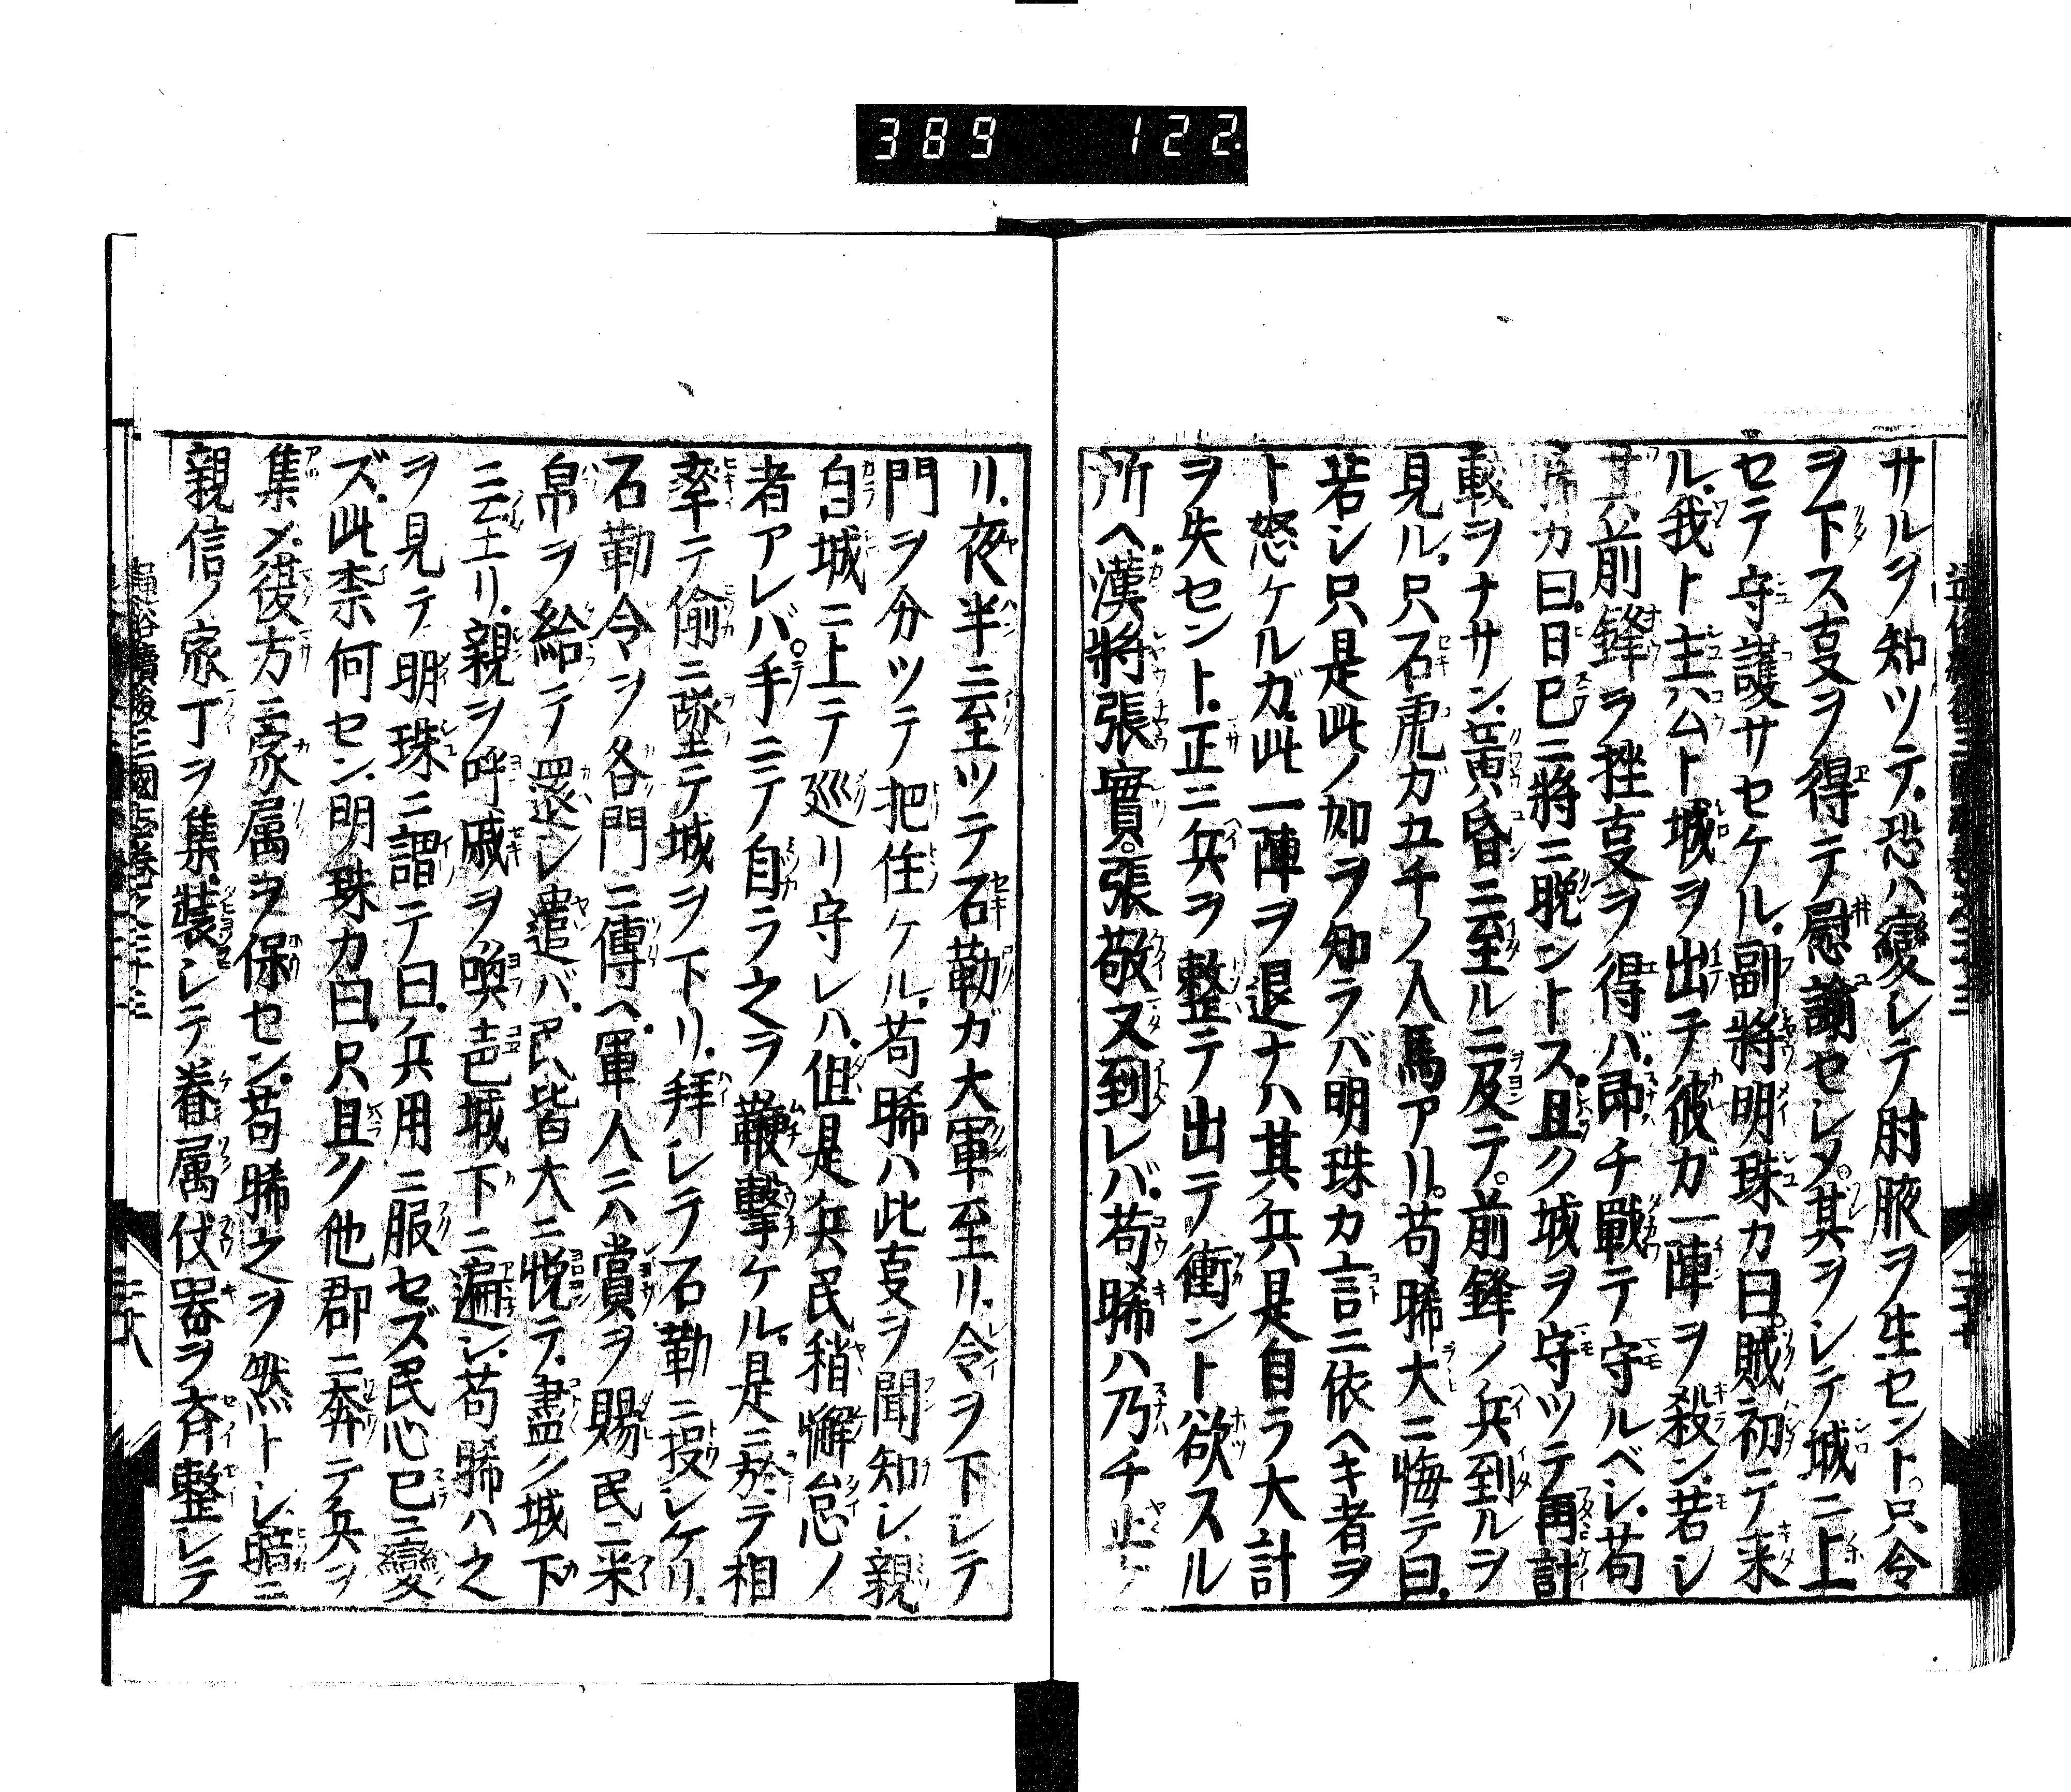 389 122.
サルヲ知ツテ恐ハ變シテ肘腋ヲ生セント。只令
ヲ下ス㕝ヲ得テ慰諭セシメ其ヲシテ城ニ上
セテ守護サセケル。副將明珠カ曰。賊初テ来
ル。我ト主公ト城ヲ出テ彼ガ一陣ヲ殺ン。若シ
其前鋒ヲ挫㕝ヲ得バ。即チ戰テ守ルベシ。苟
晞カ曰。日已ニ將ニ晩ントス。且ク城ヲ守ツテ再計
較ヲナサン。黄昏ニ至ルニ及テ。前鋒ノ兵到ルヲ
見ル。只石虎ガ五千ノ人馬アリ。苟晞大ニ悔テ曰。
若シ只是此ノ如ヲ知ラバ明珠カ言ニ依ヘキ者ヲ
ト怒ケルガ。此一陣ヲ退ナハ其兵是自ラ大計
ヲ失セント。正ニ兵ヲ整テ出テ衝ント欲スル
所ヘ。漢將張實。張敬又到レバ。苟晞ハ乃チ止ケ
リ。夜半ニ至ツテ石勒ガ大軍至リ。令ヲ下シテ
門ヲ分ツテ把住ケル。苟晞ハ此㕝ヲ聞知シ。親
自城ニ上テ巡リ守レハ。但是兵民稍懈怠ノ
者アレバ。手ニテ自ラ之ヲ鞭擊ケル。是ニ於テ相
率テ偸ニ城ヲ下リ。拜シテ石勒ニ投シケリ。
石勒令ヲ各門ニ傳ヘ。軍人ニハ賞ヲ賜民ニ米
帛ヲ給テ還シ遣バ。民皆大ニ悦テ。盡ク城下
ニ至リ。親ヲ呼戚ヲ喚聲城下ニ遍シ。苟晞ハ之
ヲ見テ明珠ニ謂テ曰。兵用ニ服セズ民心已ニ變
ズ。此柰何セン。明珠カ曰。只且ク他郡ニ奔テ兵ヲ
集メ。復方ニ家属ヲ保セン。苟晞之ヲ然トシ。暗ニ
親信ノ家丁ヲ集。裝シテ眷属伏器ヲ斉整シテ
通俗續後三國志卷之三十三
二十八